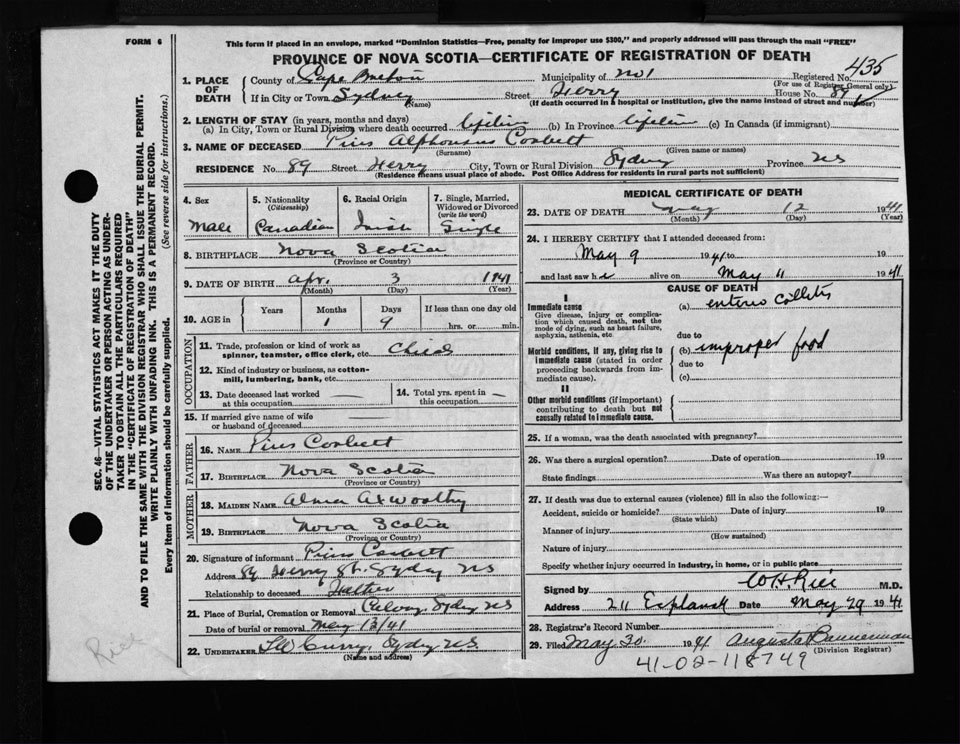 FORM 6
This form if placed in an envelope, marked "Dominion Statistics—Free, penalty for improper use $300," and properly addressed will pass through the mail "FREE"
PROVINCE OF NOVA SCOTIA—CERTIFICATE OF REGISTRATION OF DEATH
435
1. PLACE OF DEATH
County of Cape Breton Municipality of No 1 Registered No.
(For use of Registrar General only)
If in City or Town Sydney Street House No. 89
(Name) (If death occurred in a hospital or institution, give the name instead of street and number)
2. LENGTH OF STAY (in years, months and days)
(a) In City, Town or Rural Division where death occurred lifetime (b) In Province lifetime (c) In Canada (if immigrant)
3. NAME OF DECEASED Pius Alphonsus Corbett
(Surname) (Given name or names)
RESIDENCE No. 89 Street City, Town or Rural Division Sydney Province NS
(Residence means usual place of abode. Post Office Address for residents in rural parts not sufficient)
4. Sex Male
5. Nationality (Citizenship) Canadian
6. Racial Origin Irish
7. Single, Married, Widowed or Divorced (write the word) Single
8. BIRTHPLACE Nova Scotia
(Province or Country)
9. DATE OF BIRTH Apr. 3 1941
(Month) (Day) (Year)
10. AGE in Years Months Days If less than one day old
1 9 hrs. or min.
OCCUPATION
11. Trade, profession or kind of work as spinner, teamster, office clerk, etc. Child
12. Kind of industry or business, as cotton-mill, lumbering, bank, etc.
13. Date deceased last worked at this occupation —
14. Total yrs. spent in this occupation —
15. If married give name of wife or husband of deceased
FATHER
16. NAME Pius Corbett
17. BIRTHPLACE Nova Scotia
(Province or Country)
MOTHER
18. MAIDEN NAME Alma Axworthy
19. BIRTHPLACE Nova Scotia
(Province or Country)
20. Signature of informant Pius Corbett
Address 89 St. Sydney NS
Relationship to deceased Father
21. Place of Burial, Cremation or Removal Sydney NS
Date of burial or removal May 13/41
22. UNDERTAKER Curry, Sydney NS
(Name and address)
MEDICAL CERTIFICATE OF DEATH
23. DATE OF DEATH May 12 1941
(Month) (Day) (Year)
24. I HEREBY CERTIFY that I attended deceased from:
May 9 1941 to 19
and last saw h alive on May 11 1941
CAUSE OF DEATH
I
Immediate cause
Give disease, injury or complication which caused death, not the mode of dying, such as heart failure, asphyxia, asthenia, etc.
(a) entero collitis
due to
Morbid conditions, if any, giving rise to immediate cause (stated in order proceeding backwards from immediate cause).
(b) improper food
due to
(c)
II
Other morbid conditions (if important) contributing to death but not causally related to immediate cause.
25. If a woman, was the death associated with pregnancy?
26. Was there a surgical operation? Date of operation 19
State findings Was there an autopsy?
27. If death was due to external causes (violence) fill in also the following:—
Accident, suicide or homicide? Date of injury 19
(State which)
Manner of injury
(How sustained)
Nature of injury
Specify whether injury occurred in industry, in home, or in public place
Signed by W. H. Rice M.D.
Address 211 Esplanade Date May 29 1941
28. Registrar's Record Number
29. Filed May 30. 1941 Augusta Bannerman
(Division Registrar)
41-02-118749
SEC. 46—VITAL STATISTICS ACT MAKES IT THE DUTY
OF THE UNDERTAKER OR PERSON ACTING AS UNDER-
TAKER TO OBTAIN ALL THE PARTICULARS REQUIRED
IN THE "CERTIFICATE OF REGISTRATION OF DEATH"
AND TO FILE THE SAME WITH THE DIVISION REGISTRAR WHO SHALL ISSUE THE BURIAL PERMIT.
WRITE PLAINLY WITH UNFADING INK. THIS IS A PERMANENT RECORD.
Every item of information should be carefully supplied. (See reverse side for instructions.)
Rice